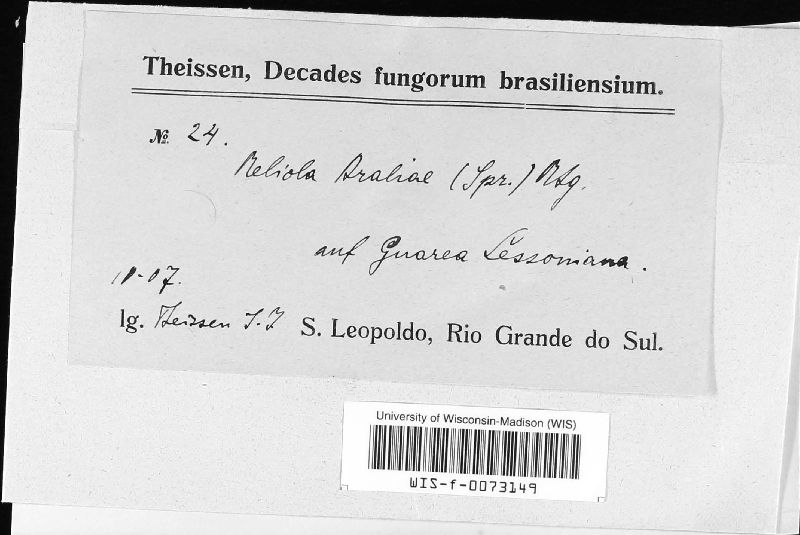 Theissen, Decades fungorum brasiliensium.
№ 24.
Meliola Araliae (Spr.) Mtg.
auf Guarea Lessoniana.
-07.
lg. Theissen S.J S. Leopoldo, Rio Grande do Sul.
University of Wisconsin-Madison (WIS)
WIS-f-0073149